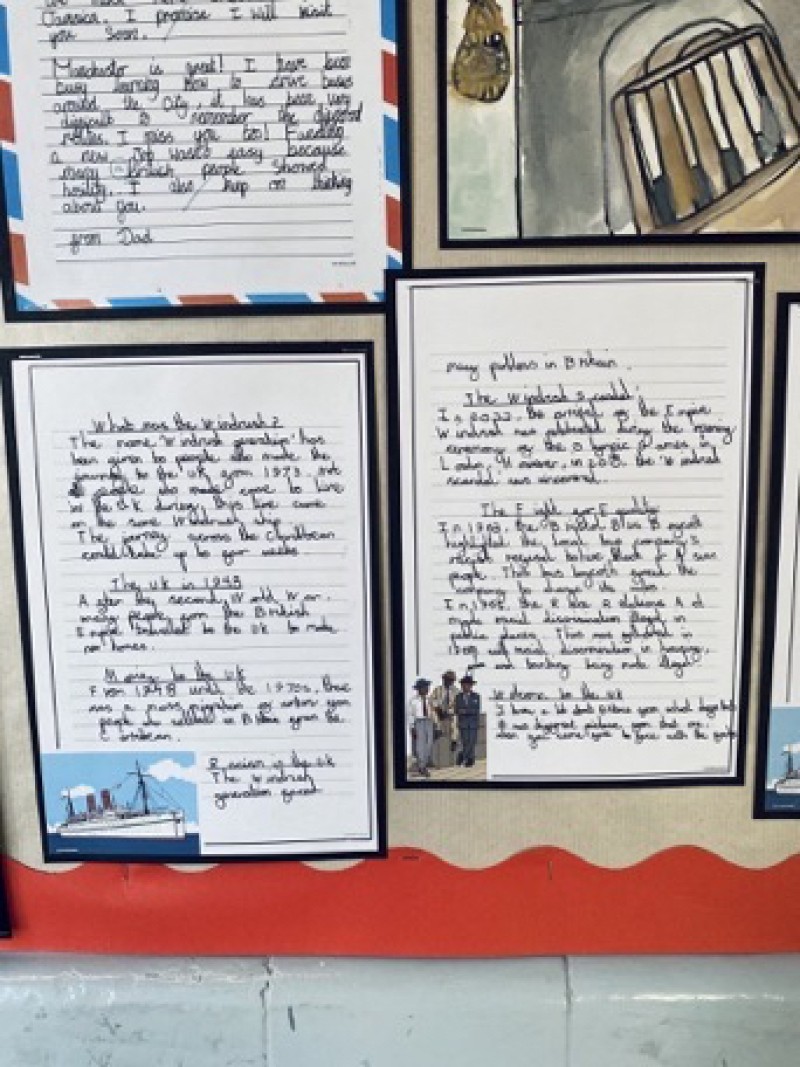 Jamaica. I promise I will visit
you soon.
Manchester is great! I have been
busy learning how to drive buses
around the City, it has been very
difficult to remember the
routes. I miss you too! Finding
a new Job wasn't easy because
many British people showed
hostility. I also keep on thinking
about you.
from Dad
What was the Windrush?
The name Windrush generation has
been given to people who made the
journey to the UK from 1973. not
all people who made come to live
in the UK during this time came
on the same Windrush ship.
The journey across the Caribbean
could take up to four weeks.
The UK in 1948
After the second World War,
many people from the British
Empire travelled to the UK to make
new homes.
Moving to the UK
From 1948 until the 1970s, there
was a mass migration of
people who settled in Britain from the
Caribbean.
Racism in the UK
The Windrush
generation faced
many problems in Britain.
The Windrush Scandal
In the arrival of the Empire
Windrush was celebrated during the opening
ceremony of the Olympic Games in
London. However, in the Windrush
scandal was uncovered.
The Fight for Equality
In 1963, the Bristol Bus Boycott
highlighted the local bus company's
refusal to have Black or Asian
people. This bus boycott forced the
company to change the rules.
In 1965, the Race Relations Act
made racial discrimination illegal in
public places. This was in
racial discrimination in housing,
and banking being made illegal
Welcome to the UK